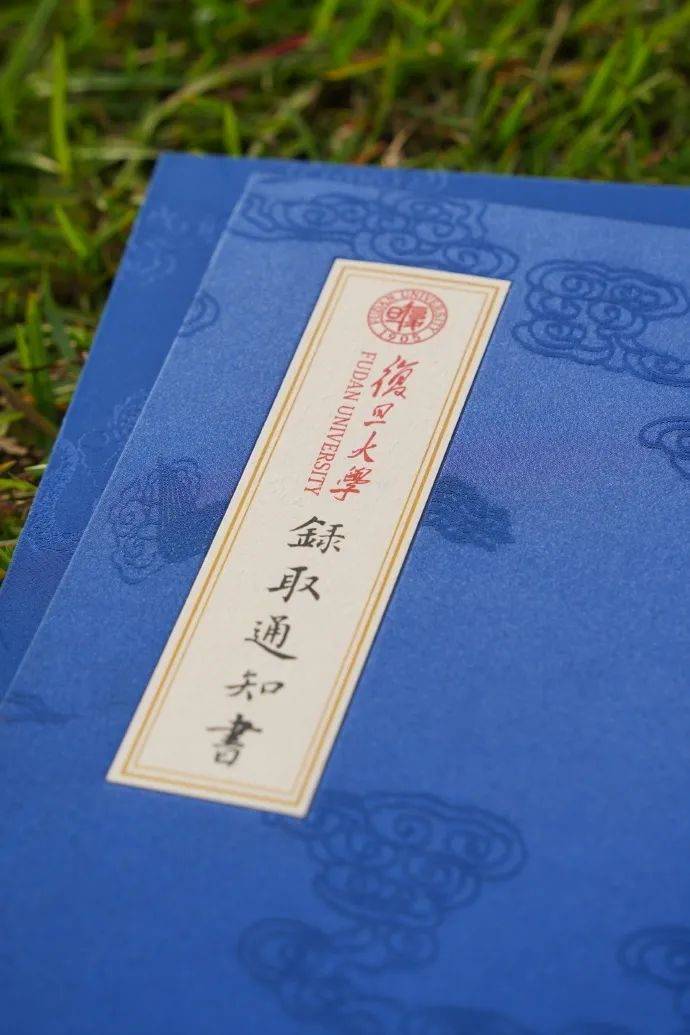 FUDAN UNIVERSITY
1905
復旦大學
FUDAN UNIVERSITY
録取通知書